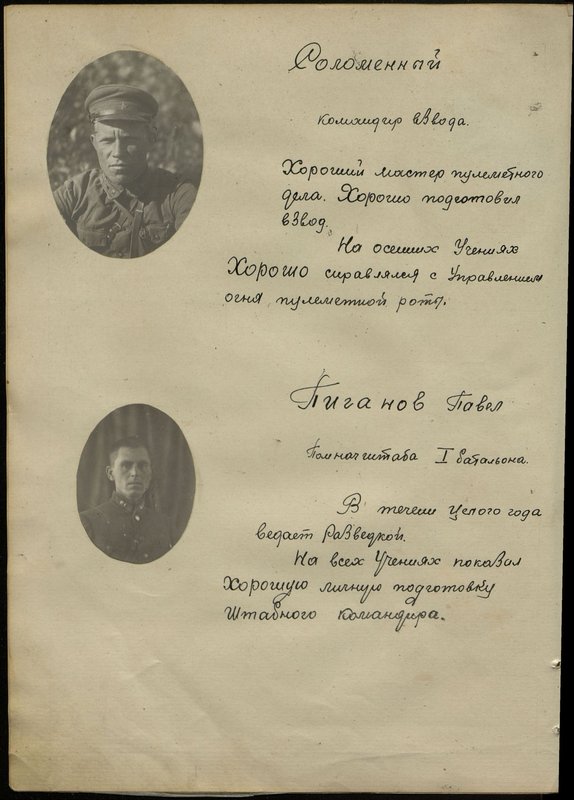 Соломенный
командир взвода.
Хороший мастер пулеметного
дела. Хорошо подготовил
взвод.
На осенних Учениях
Хорошо справлялся с Управлением
огня пулеметной роты.
Пиганов Павел
Помначштаба I батальона.
В течени целого года
ведает Разведкой.
На всех Учениях показал
Хорошую личную подготовку
Штабного командира.